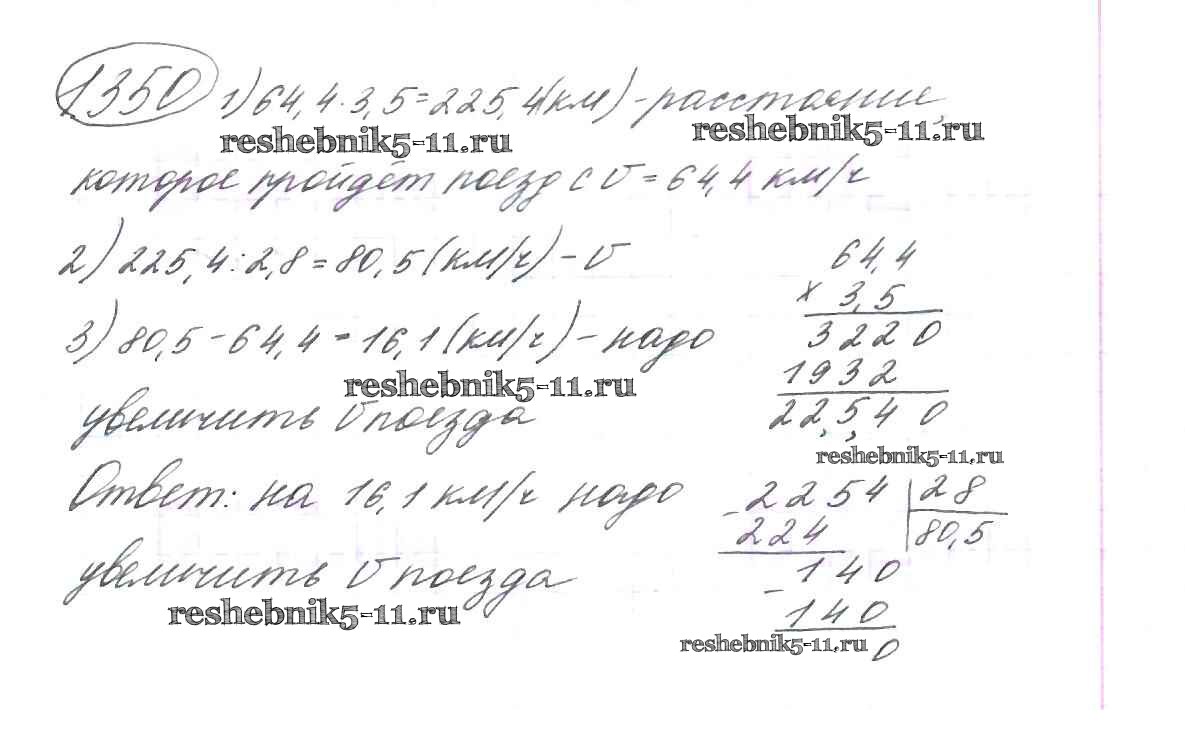 1350 1) 64,4·3,5=225,4(км) - расстояние,
reshebnik5-11.ru reshebnik5-11.ru
которое пройдёт поезд с v = 64,4 км/ч
2) 225,4:2,8=80,5(км/ч) - v
64,4
× 3,5
3220
1932
22,5,40
reshebnik5-11.ru
3) 80,5-64,4=16,1(км/ч) - надо
reshebnik5-11.ru
увеличить v поезда
Ответ: на 16,1 км/ч надо
увеличить v поезда
reshebnik5-11.ru
- 2254 28
224 80,5
140
- 140
0
reshebnik5-11.ru